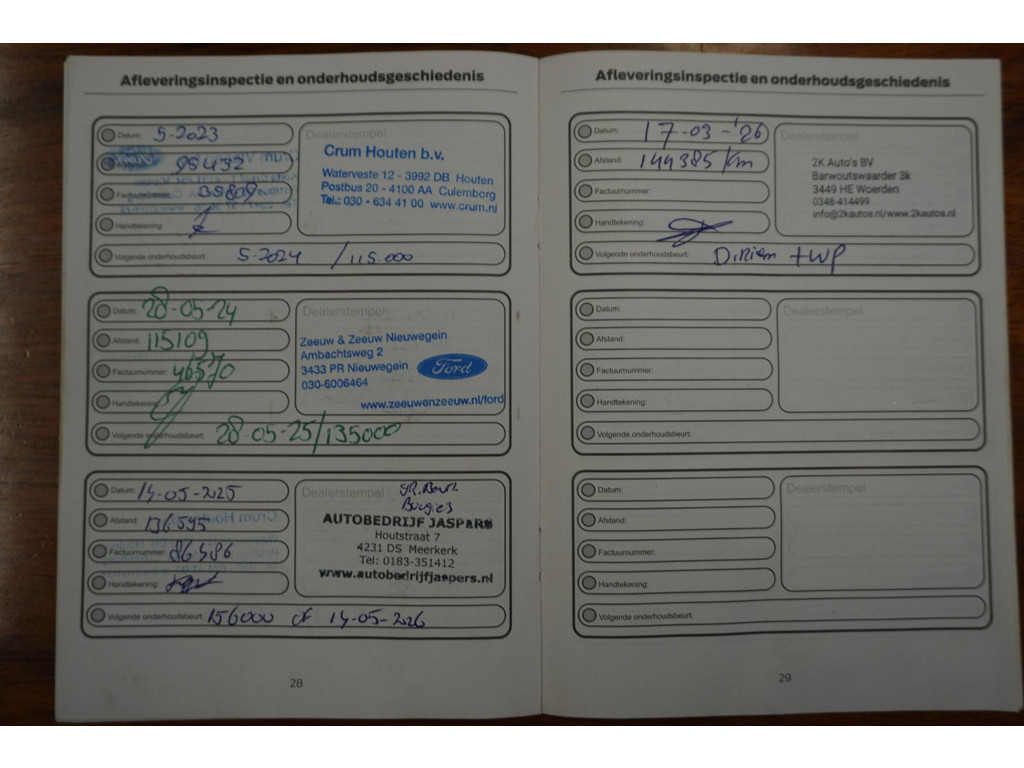 Afleveringsinspectie en onderhoudsgeschiedenis
Datum: 5-2023
Afstand: 95432
Factuurnummer: 39809
Handtekening:
Volgende onderhoudsbeurt: 5-2024 / 115.000
Dealerstempel
Crum Houten b.v.
Waterveste 12 - 3992 DB Houten
Postbus 20 - 4100 AA Culemborg
Tel.: 030 - 634 41 00 www.crum.nl
Datum: 28-05-24
Afstand: 115109
Factuurnummer: 46570
Handtekening:
Volgende onderhoudsbeurt: 28-05-25/135000
Dealerstempel
Zeeuw & Zeeuw Nieuwegein
Ambachtsweg 2
3433 PR Nieuwegein
030-6006464
Ford
www.zeeuwenzeeuw.nl/ford
Datum: 14-05-2025
Afstand: 136595
Factuurnummer: 86486
Handtekening:
Volgende onderhoudsbeurt: 156000 of 14-05-2026
Dealerstempel
Bougies
AUTOBEDRIJF JASPERS
Houtstraat 7
4231 DS Meerkerk
Tel: 0183-351412
www.autobedrijfjaspers.nl
28
Afleveringsinspectie en onderhoudsgeschiedenis
Datum: 17-03-'26
Afstand: 144385 km
Factuurnummer:
Handtekening:
Volgende onderhoudsbeurt: D.Riem + WP
Dealerstempel
2K Auto's BV
Barwoutswaarder 3k
3449 HE Woerden
0348-414499
info@2kautos.nl/www.2kautos.nl
Datum:
Afstand:
Factuurnummer:
Handtekening:
Volgende onderhoudsbeurt:
Dealerstempel
Datum:
Afstand:
Factuurnummer:
Handtekening:
Volgende onderhoudsbeurt:
Dealerstempel
29